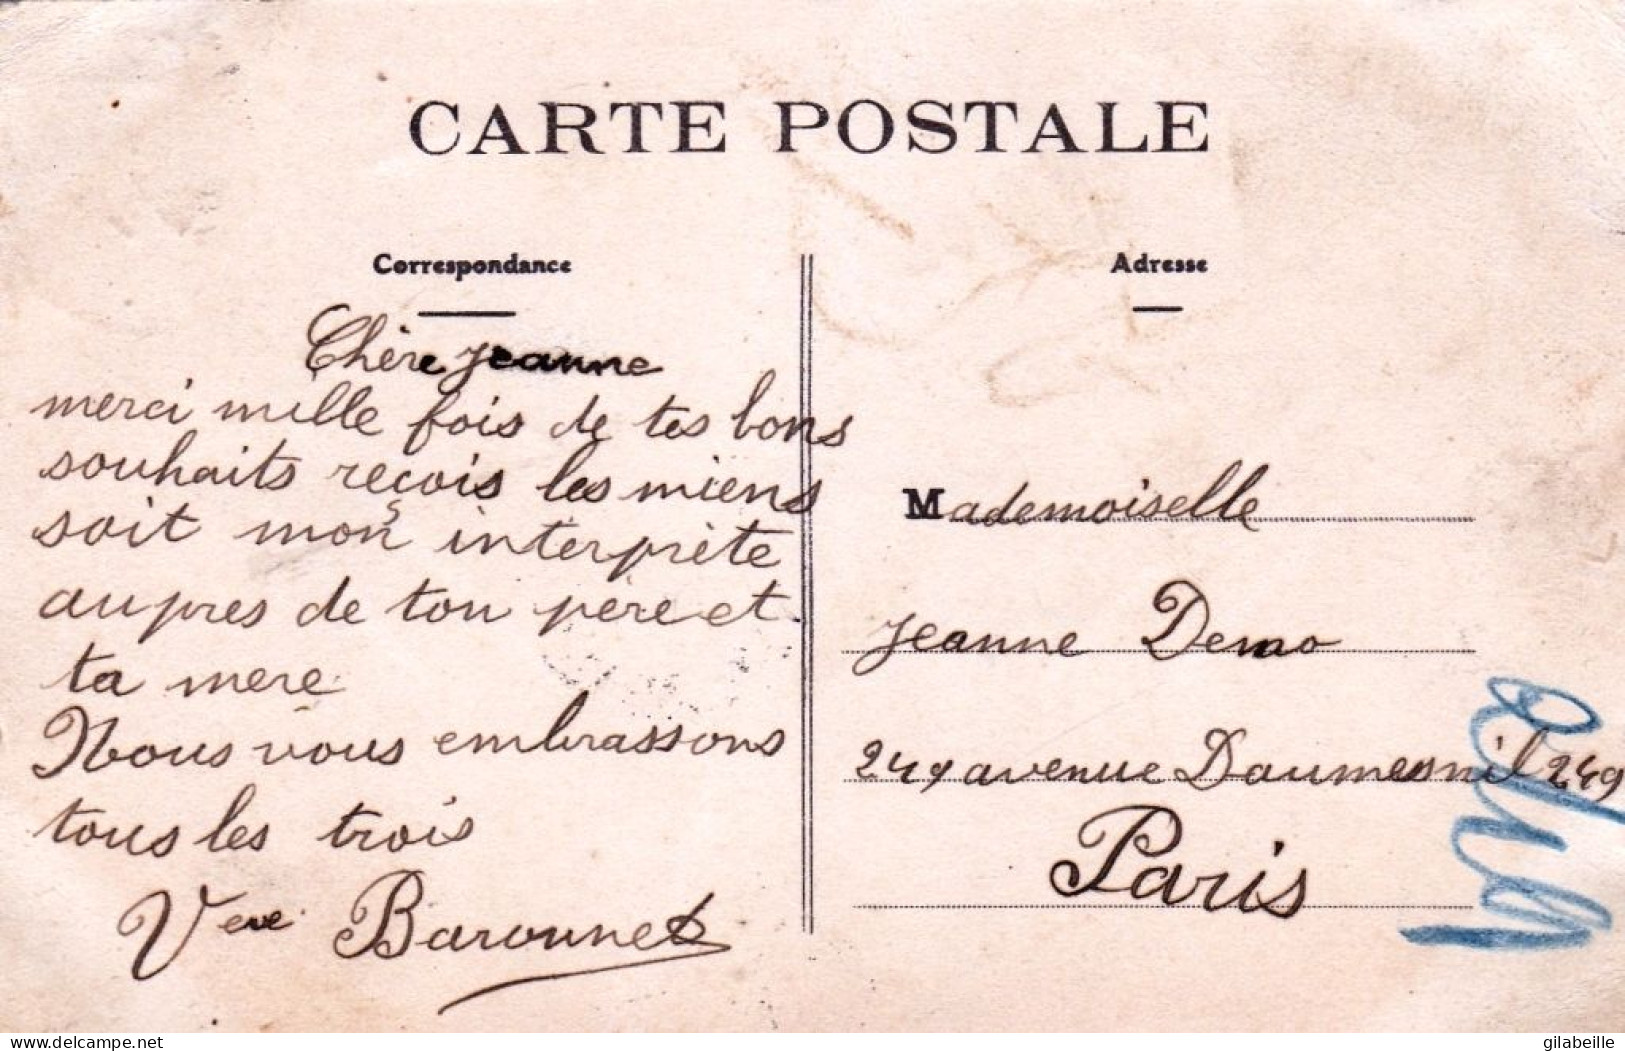 CARTE POSTALE
Correspondance
Chère Jeanne
merci mille fois de tes bons
souhaits reçois les miens
soit mon interprète
aupres de ton père et
ta mere
Nous vous embrassons
tous les trois
Veve Barounet
Adresse
Mademoiselle
Jeanne Demo
249 avenue Daumesnil 249
Paris
delcampe.net
gilabeille